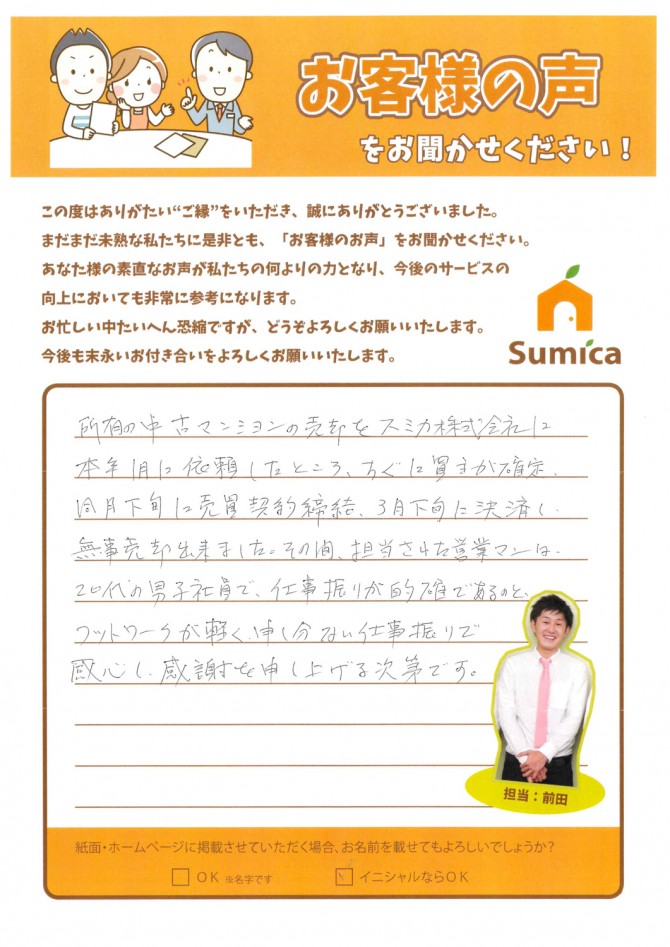 お客様の声
をお聞かせください！
この度はありがたい“ご縁”をいただき、誠にありがとうございました。
まだまだ未熟な私たちに是非とも、「お客様のお声」をお聞かせください。
あなた様の素直なお声が私たちの何よりの力となり、今後のサービスの
向上においても非常に参考になります。
お忙しい中たいへん恐縮ですが、どうぞよろしくお願いいたします。
今後も末永いお付き合いをよろしくお願いいたします。
Sumica
所有の中古マンションの売却をスミカ株式会社に
本年1月に依頼したところ、すぐに買主が確定、
同月下旬に売買契約締結、3月下旬に決済し、
無事売却出来ました。その間、担当された営業マンは、
20代の男子社員で、仕事振りが的確であるのと、
フットワークが軽く、申し分ない仕事振りで
感心し、感謝を申し上げる次第です。
担当：前田
紙面・ホームページに掲載させていただく場合、お名前を載せてもよろしいでしょうか？
OK ※名字です イニシャルならOK